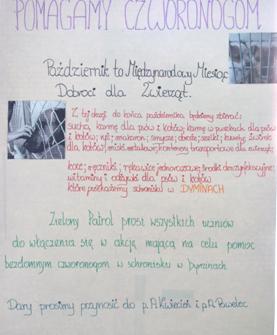 POMAGAMY CZWORONOGOM
Październik to Międzynarodowy Miesiąc
Dobroci dla Zwierząt.
Z tej okazji do końca października będziemy zbierać:
suchą karmę dla psów i kotów, karmę w puszkach dla psów
i kotów; ryż; makaron; smycze; obroże; szelki; kuwety, żwirek
dla kotów; miski metalowe; kontenery transportowe dla zwierząt;
koce; ręczniki; rękawice jednorazowe; środki dezynfekujące;
witaminy i odżywki dla psów i kotów
które przekażemy schronisku w DYMINACH
Zielony Patrol prosi wszystkich uczniów
do włączenia się w akcję mającą na celu pomoc
bezdomnym czworonogom w schronisku w Dyminach.
Dary prosimy przynosić do p. A. Kwiecień i p. A. Pawelec